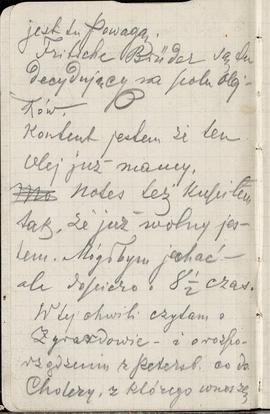 jest tu powagą.
Fritsche Brüder są tu
decydujący na polu olej-
ków.
Kontent jestem że ten
olej już mamy.
Notes też kupiłem
tak, że już wolny jes-
tem. Mógłbym jechać—
ale dopiero o 8½ czas.
W tej chwili czytam o
Żyrardowie — i o rozpo-
rządzeniu z Petersb. co do
Cholery, z którego wnoszę